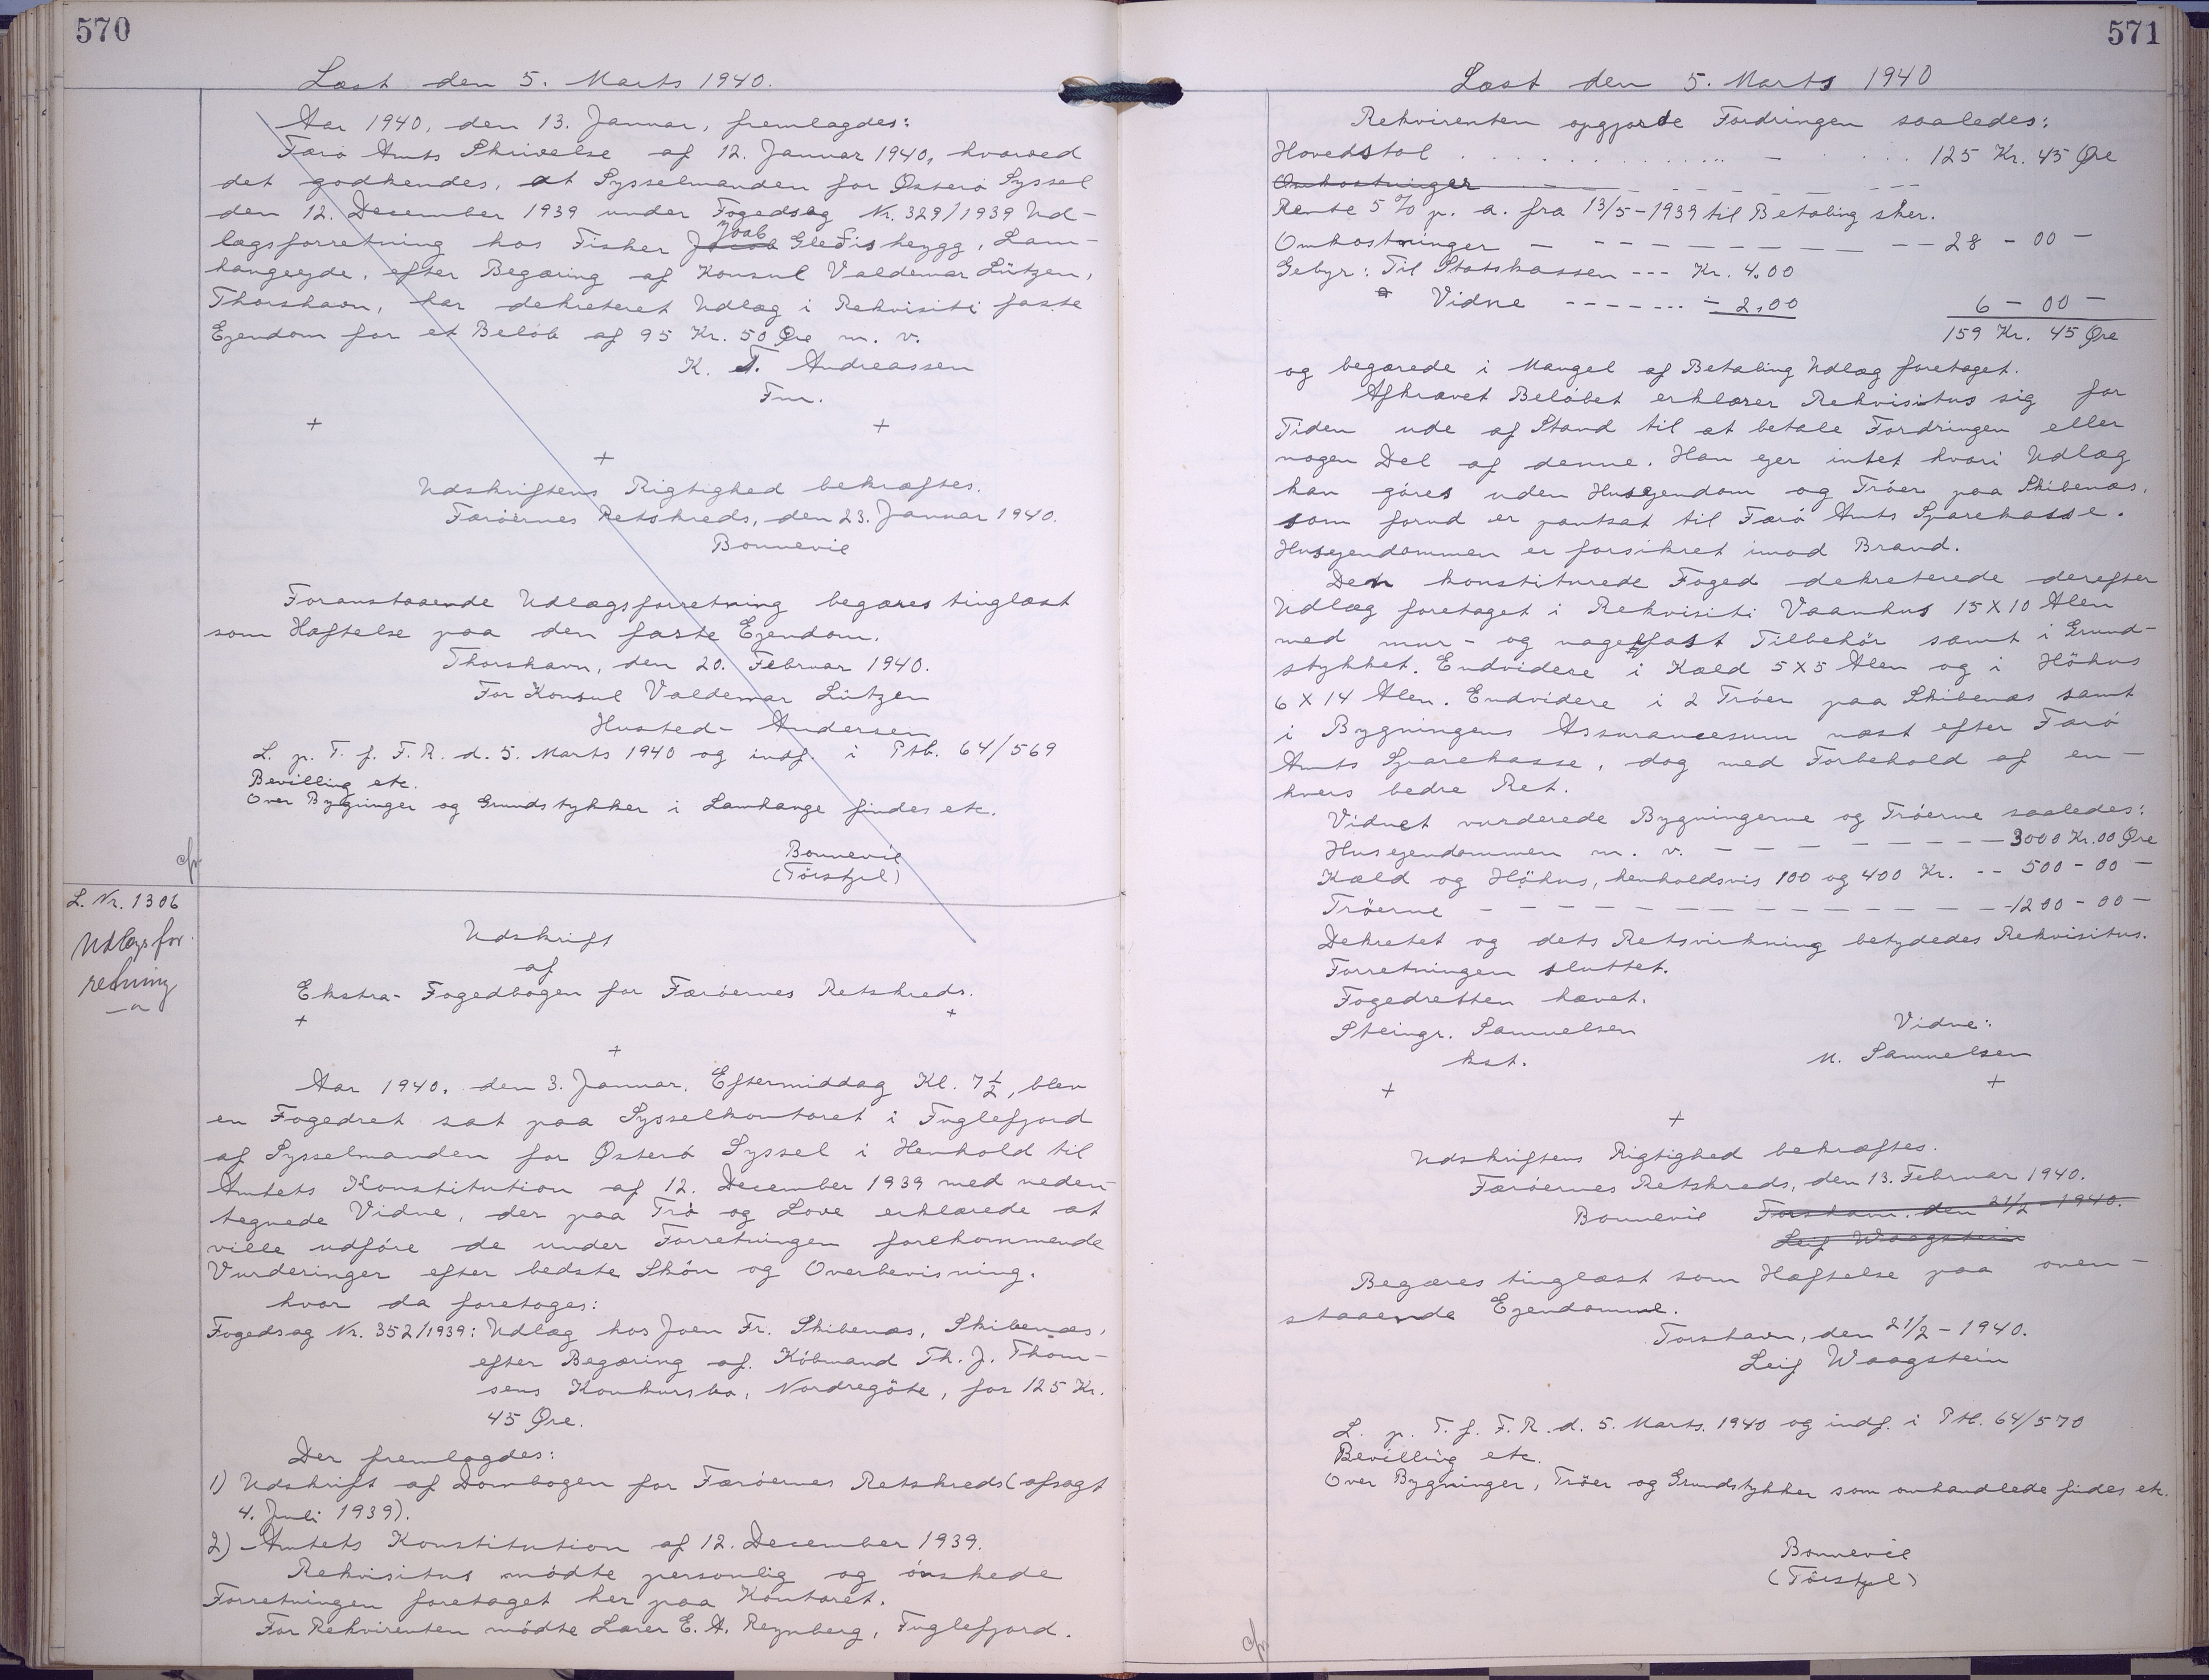 570
Læst den 5. Marts 1940.
Aar 1940, den 13. Januar, fremlagdes:
Færø Amts Skrivelse af 12. Januar 1940, hvorved
det godkendes, at Sysselmanden for Østerø Syssel
den 12. December 1939 under Fogedsag Nr. 329/1939 Ud-
lægsforretning hos Fisker Joab Glerfisheygg, Lam-
hangeyde, efter Begæring af Konsul Valdemar Lützen,
Thorshavn, har dekreteret Udlæg i Rekvisiti faste
Ejendom for et Beløb af 95 Kr. 50 Øre m. v.
K. T. Andreassen
Fm.
+ +
+
Udskriftens Rigtighed bekræftes.
Færøernes Retskreds, den 23. Januar 1940.
Bonnevie
Foranstaaende Udlægsforretning begæres tinglæst
som Hæftelse paa den faste Ejendom.
Thorshavn, den 20. Februar 1940.
For Konsul Valdemar Lützen
Husted-Andersen
L. p. T. f. F. R. d. 5. Marts 1940 og indf. i Ptb. 64/569
Bevilling etc.
Over Bygninger og Grundstykker i Lamhange findes etc.
Bonnevie
(Tórstjel)
cfr
L. Nr. 1306
Udlægsfor-
retning
Udskrift
af
Ekstra-Fogedbogen for Færøernes Retskreds.
+ +
+
Aar 1940, den 3. Januar, Eftermiddag Kl. 7½, blev
en Fogedret sat paa Sysselkontoret i Fuglefjord
af Sysselmanden for Østerø Syssel i Henhold til
Amtets Konstitution af 12. December 1939 med neden-
tegnede Vidne, der paa Tro og Love erklærede at
ville udføre de under Forretningen forekommende
Vurderinger efter bedste Skön og Overbevisning.
hvor da foretoges:
Fogedsag Nr. 352/1939: Udlæg hos Joen Fr. Skibenæs, Skibenæs,
efter Begæring af Købmand Th. J. Thom-
sens Konkursbo, Nordregöte, for 125 Kr.
45 Øre.
Der fremlagdes:
1) Udskrift af Dombogen for Færøernes Retskreds (afsagt
4. Juli 1939).
2) Amtets Konstitution af 12. December 1939.
Rekvisitus mødte personlig og ønskede
Forretningen foretaget her paa Kontoret.
For Rekvirenten mødte Lærer E. A. Reynberg, Fuglefjord.
571
Læst den 5. Marts 1940
Rekvirenten opgjorde Fordringen saaledes:
Hovedstol . . . . . . . . . . . . 125 Kr. 45 Øre
Omkostninger - - - - - -
Rente 5 % p. a. fra 13/5-1939 til Betaling sker.
Omkostninger - - - - - - - - - 28 - 00 -
Gebyr: Til Statskassen --- Kr. 4.00
" Vidne - - - - - - - 2.00 6 - 00 -
159 Kr. 45 Øre
og begærede i Mangel af Betaling Udlæg foretaget.
Afkrævet Beløbet erklærer Rekvisitus sig for
Tiden ude af Stand til at betale Fordringen eller
nogen Del af denne. Han ejer intet hvori Udlæg
kan göres uden Husejendom og Tröer paa Skibenæs,
som forud er pantsat til Færø Amts Sparekasse.
Husejendommen er forsikret imod Brand.
Den konstituerede Foged dekreterede derefter
Udlæg foretaget i Rekvisiti Vaanhus 15 X 10 Alen
med mur- og nagelfast Tilbehör samt i Grund-
stykket. Endvidere i Kæld 5 X 5 Alen og i Höhus
6 X 14 Alen. Endvidere i 2 Tröer paa Skibenæs samt
i Bygningens Assurancesum næst efter Færø
Amts Sparekasse, dog med Forbehold af en-
hvers bedre Ret.
Vidnet vurderede Bygningerne og Tröerne saaledes:
Husejendommen m. v. - - - - - - - - 3000 Kr. 00 Øre
Kæld og Höhus, henholdsvis 100 og 400 Kr. -- 500 - 00 -
Tröerne - - - - - - - - - - - - 1200 - 00 -
Dekretet og dets Retsvirkning betydedes Rekvisitus.
Forretningen sluttet.
Fogedretten hævet.
Steingr. Samuelsen Vidne:
kst. M. Samuelsen
+ +
+
Udskriftens Rigtighed bekræftes.
Færøernes Retskreds, den 13. Februar 1940.
Bonnevie Torshavn, den 21/2-1940.
Leif Waagstein
Begæres tinglæst som Hæftelse paa oven-
staaende Ejendomme.
Torshavn, den 21/2-1940.
Leif Waagstein
L. p. T. f. F. R. d. 5. Marts. 1940 og indf. i Ptb. 64/570
Bevilling etc.
Over Bygninger, Tröer og Grundstykker som omhandlede findes etc.
Bonnevie
(Tórstjel)
cfr